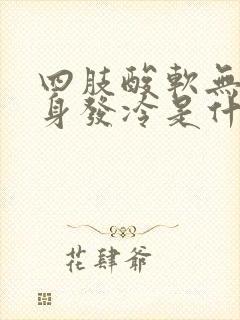 四肢酸軟無
身發冷是什
花肆爺